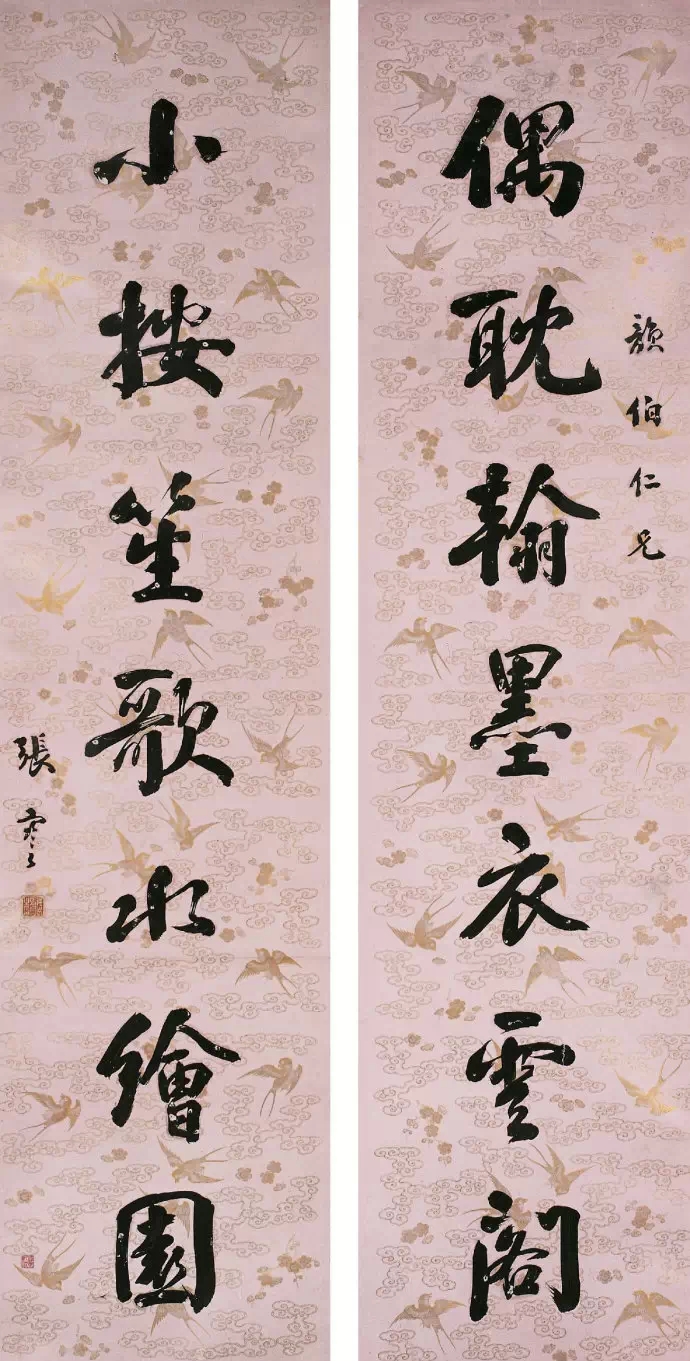 伯仁兄
偶耽翰墨衣雲閣
小按笙歌水繪園
張謇